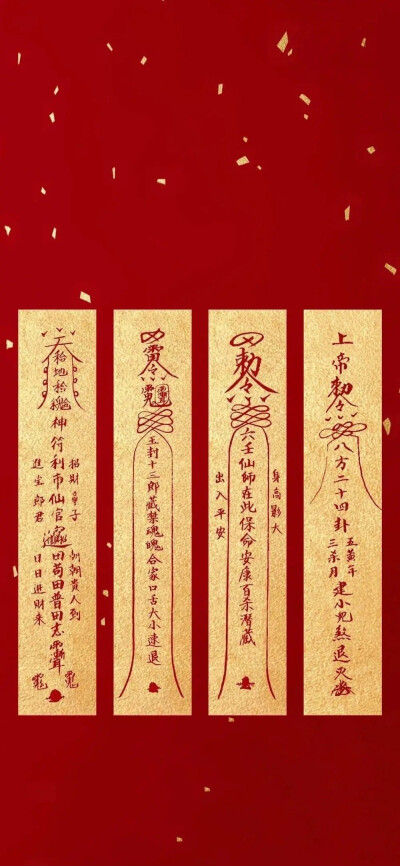 上帝勅令
八方二十四卦
五黃年
三杀月
建小兒煞退灭
勅令
六壬仙師在此保命安康百杀潛藏
身高影大
出入平安
雷令
玉封十三郎藏禁魂魄合家口舌大小速退
神符利市仙官
招財童子
進宝郎君
朝朝貴人到
日日進財來
田苟田普田志